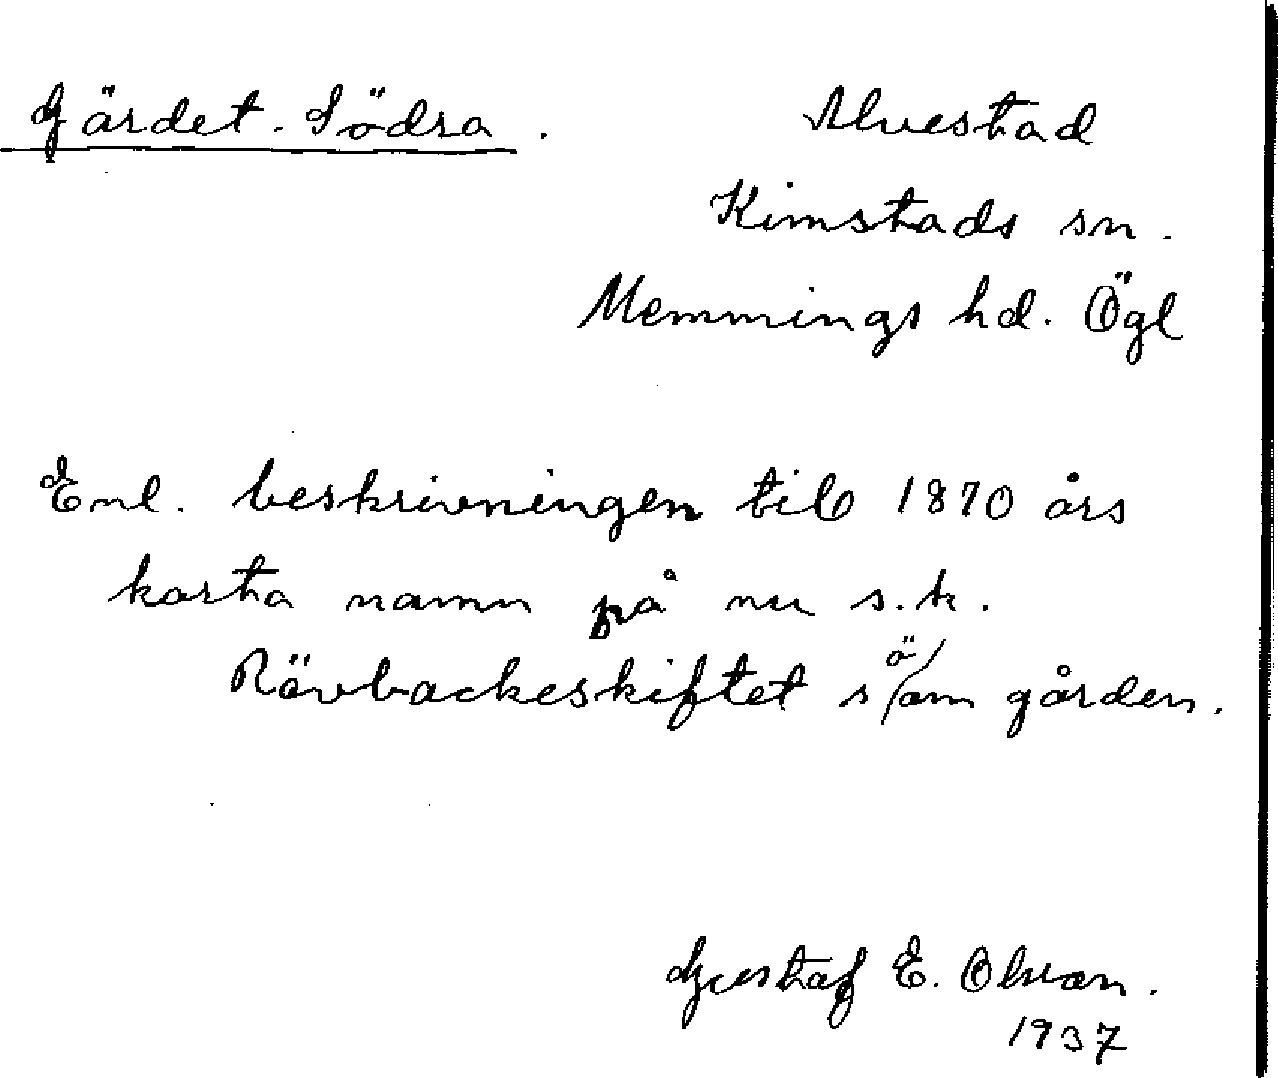 Gärdet. Södra. Alvestad
Kimstads sn.
Memmings hd. Ögl
Enl. beskrivningen till 1870 års
karta namn på nu s.k.
Rävbackeskiftet s/ö/om gården.
Gustaf E. Olsson.
1937